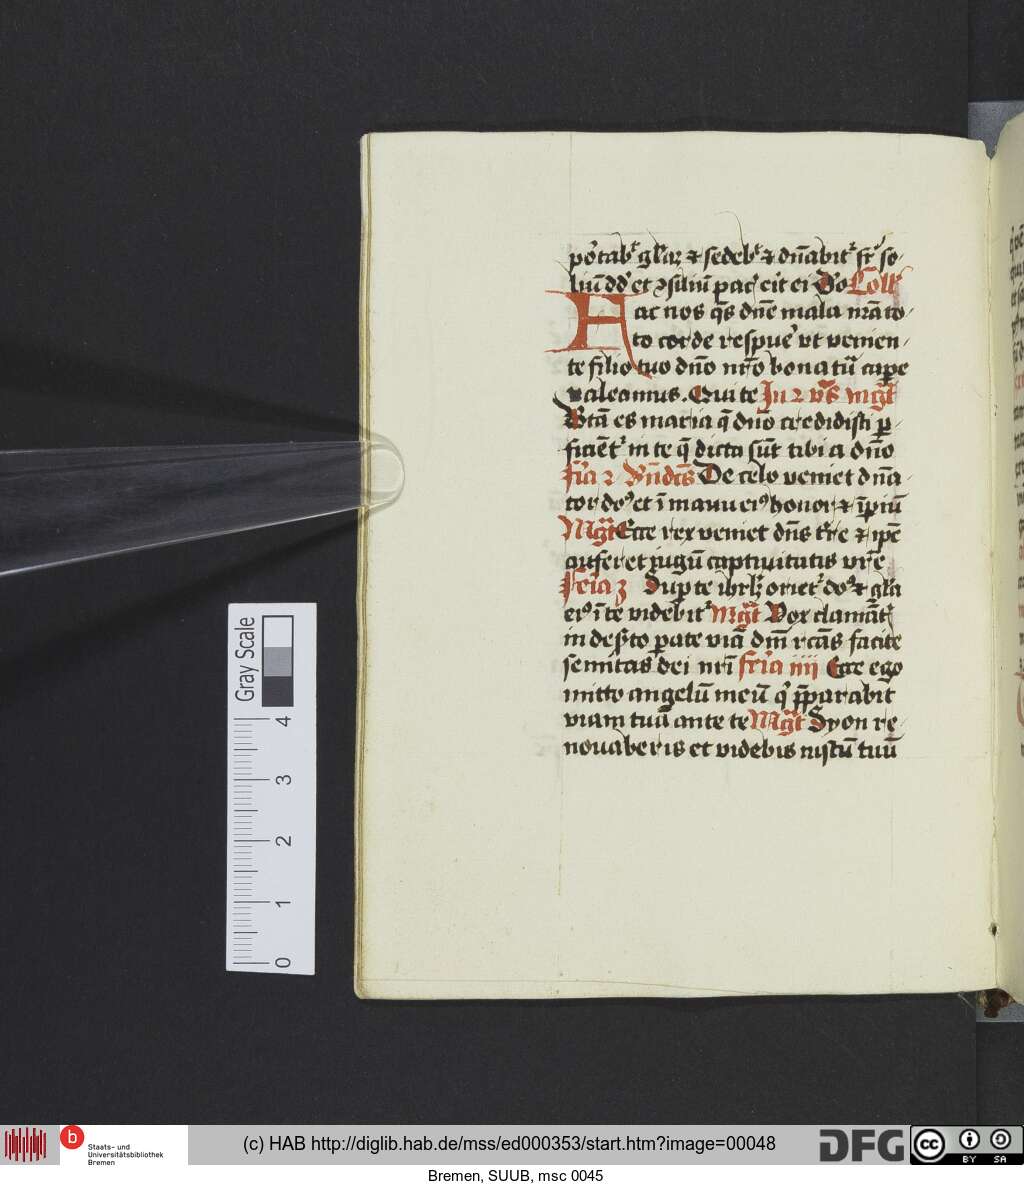 portabit gl'iam & sedebit & dn̄abitᷣ sr̄ so
liū dd' et ↄsiliū pac' erit ei Do Coll'
Fac nos q̄s dn̄e mala nr̄a to
to corde respuē ut venien
te filio tuo dn̄o nr̄o bona tū cap̄e
valeamus. Qui te In 2 vs̄ mḡt
Btā es maria q̄ dn̄o credidisti ꝑ
ficiētᷣ in te q̄ dicta sūt tibi a dn̄o
De celo veniet dn̄a
tor dn̄s et ī manu eiꝰ honor & īꝑiū
Mḡt Ecce rex veniet dn̄s tr̄e & ip̄e
auferet iugū captiuitatis vr̄e
Feria 3 Sup te ihrl'm orietᷣ dn̄s & gl'ia
eiꝰ ī te videbitᷣ Mḡt Vox clamāt'
in des̄to ꝑate viā dn̄i rc̄as facite
semitas dei nr̄i fr̄ia iiii Ecce ego
mitto angelū meū q' p̄parabit
viam tuā ante te Mḡt Syon re
nouaberis et videbis iustū tuū
Gray Scale
4
3
2
1
0
b
Staats- und
Universitätsbibliothek
Bremen
(c) HAB http://diglib.hab.de/mss/ed000353/start.htm?image=00048
DFG
cc BY SA
Bremen, SUUB, msc 0045